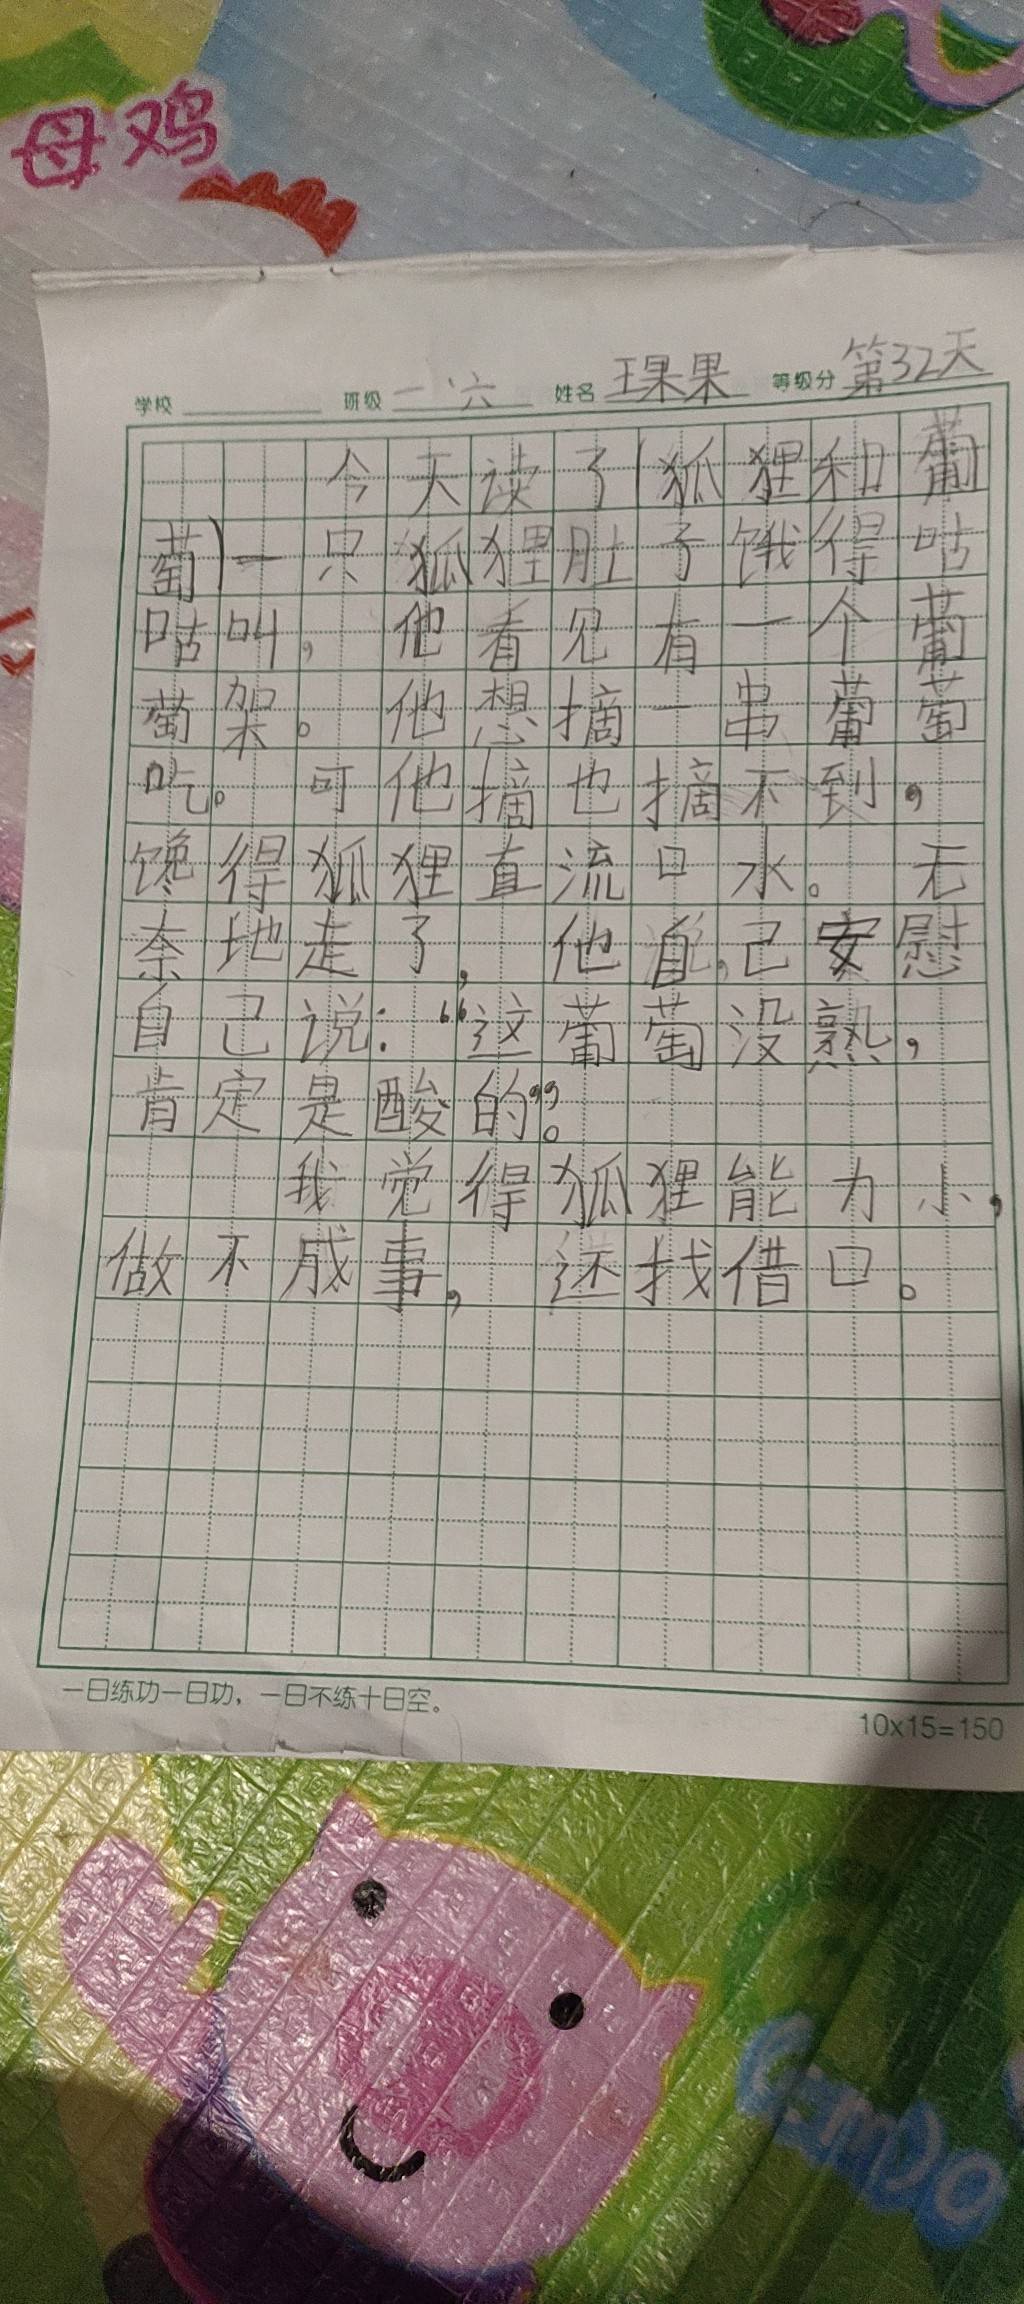 母鸡
学校 班级 一、六 姓名 王果果 等级分 第32天
今天读了(狐狸和葡
萄)一只狐狸肚子饿得咕
咕叫，他看见有一个葡
萄架。他想摘一串葡萄
吃。可他摘也摘不到，
馋得狐狸直流口水。无
奈地走了，他自己安慰
自己说：“这葡萄没熟，
肯定是酸的”。
我觉得狐狸能力小，
做不成事，还找借口。
一日练功一日功，一日不练十日空。
10x15=150